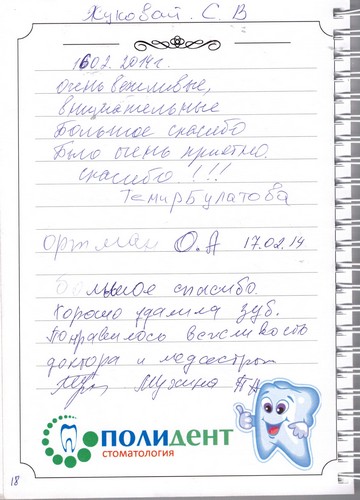 Жуковой. С. В
16.02.2014г.
очень вежливые,
внимательные
Большое спасибо
Было очень приятно.
спасибо!!!
Темирбулатова
Ортман О.А 17.02.14
Большое спасибо
Хорошо удалила зуб.
Понравилось вежливость
доктора и медсестры
Мухина
ПОЛИДЕНТ
СТОМАТОЛОГИЯ
18